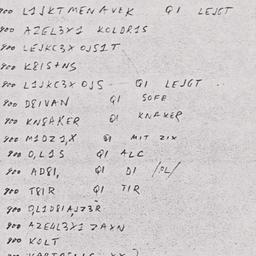 900 L1JKTMENAVEK QI LEJGT
900 AZEL3Y1 KOLDR1S
900 LEJKC3X OJS1T
900 K8IS+NS
900 L1JKC3X OJS QI LEJGT
900 D8IVAN QI SOFE
900 KNGAKER QI KNFKER
900 M1DZ1,X QI MIT ZIX
900 O,L1S QI ALC
900 AD8I, QI DI /OL/
900 T8IR QI TIR
900 QL1D8IAJZ3R
900 AZE4L3Y1 ZAYN
900 KOLT